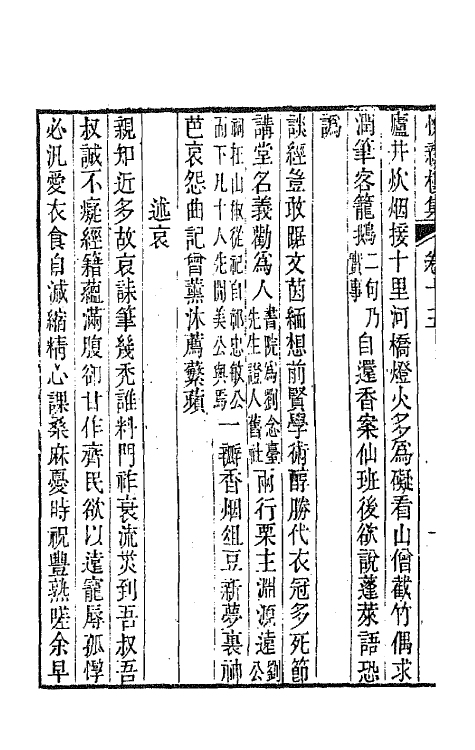 卷十五
廬井炊烟接十里河橋燈火多爲礙看山僧截竹偶求
潤筆客籠鵝二句乃實事自還香案仙班後欲說蓬萊語恐
譌
談經豈敢踞文茵緬想前賢學術醇勝代衣冠多死節
講堂名義勸爲人書院爲劉念臺先生證人舊社兩行栗主淵源遠劉公
祠在山椒從祀自祁忠敏公而下凡十人先閬美公與焉一瓣香烟俎豆新夢裏神
芭哀怨曲記曾薰沐薦蘩蘋
述哀
親知近多故哀誄筆幾禿誰料門祚衰流災到吾叔吾
叔誠不癡經籍蘊滿腹卻甘作齊民欲以遠寵辱孤惸
必汎愛衣食自減縮精心課桑麻憂時祝豐熟嗟余早